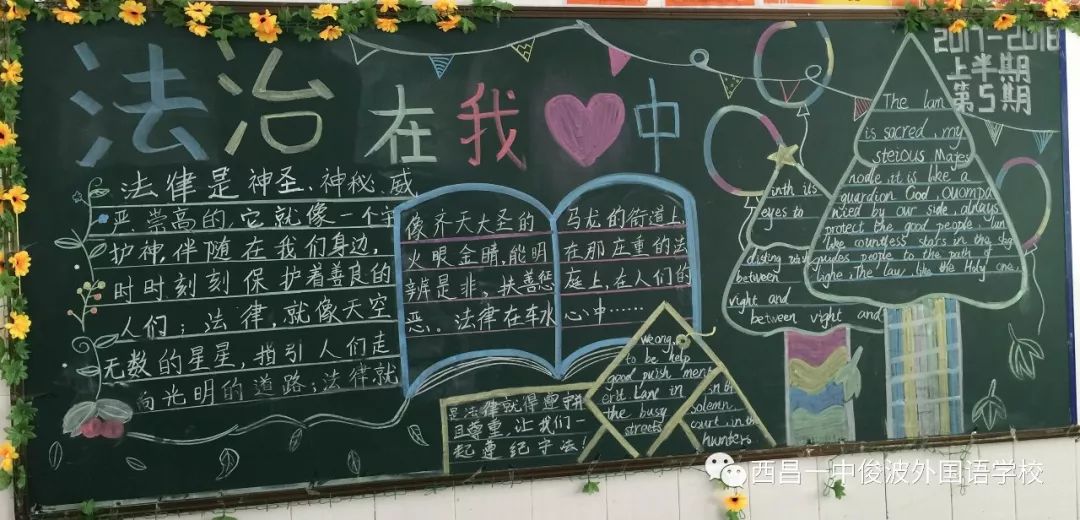 法治在我中
2017-2018
上半期
第5期
法律是神圣、神秘、威
严、崇高的,它就像一个守
护神,伴随在我们身边,
时时刻刻保护着善良的
人们;法律,就像天空
无数的星星,指引人们走
向光明的道路;法律就
像齐天大圣的
火眼金睛,能明
辨是非,扶善惩
恶。法律在车水
马龙的街道上,
在那庄重的法
庭上,在人们的
心中……
是法律就得遵守并
且尊重,让我们一
起遵纪守法!
wrong,
to be help
good punish ment
evil Law in
the busy
streets
in the
solemn
court, in the
hunters
inth its
eyes to
disting uish
between
right and
between right and
The law
is sacred, my
sterious Majes
node, it is like a
guardion God, auompa
nied by our side, always
protect the good people, law
like countless stars in the sky
guides people to the path of
lighe, The law, like the Holy one,
西昌一中俊波外国语学校